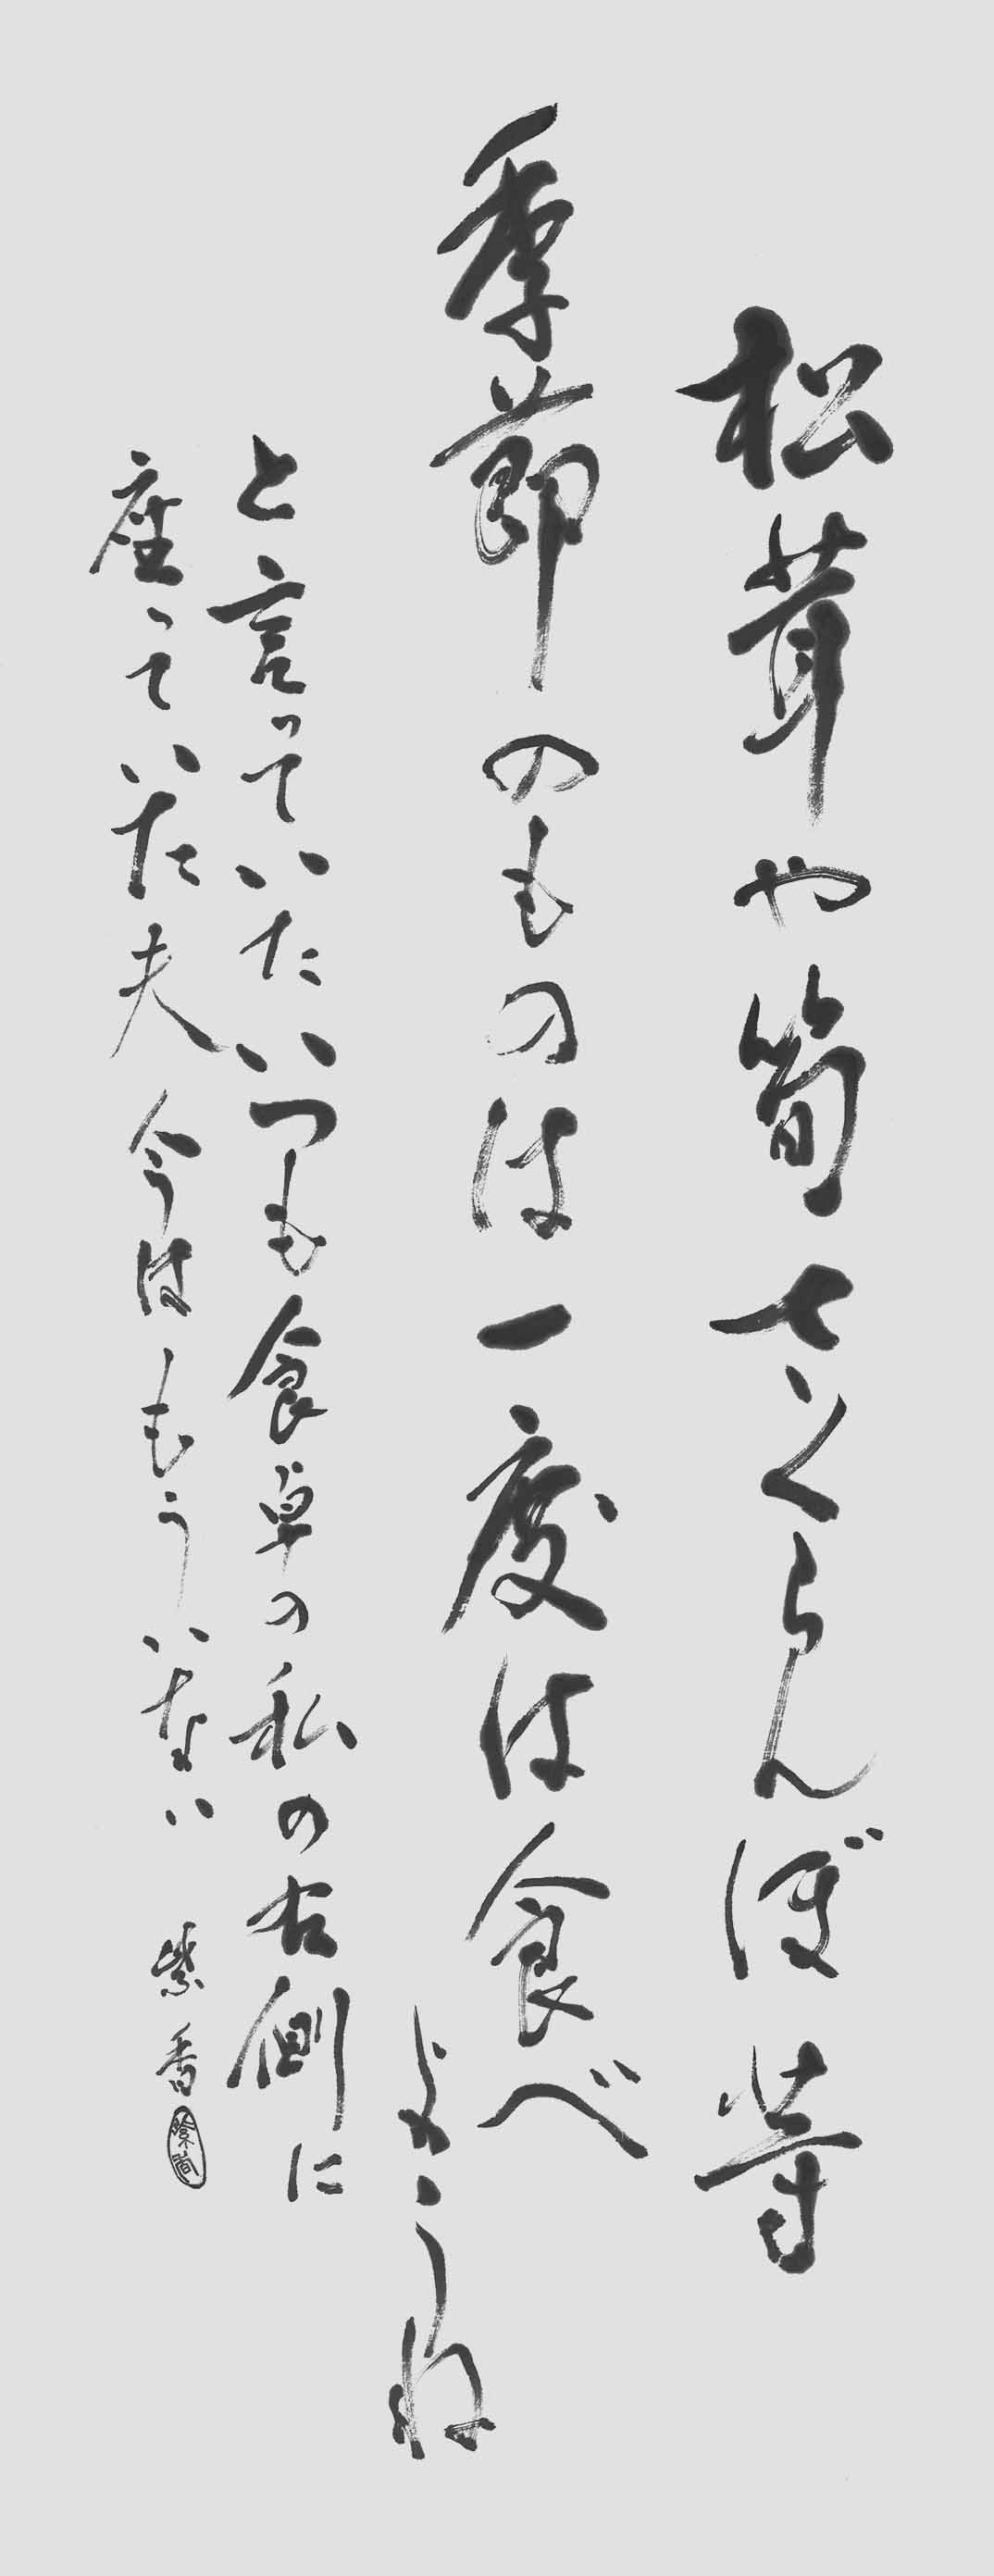 松茸や筍さくらんぼ等
季節のものは一度は食べ
ようね
と言っていたいつも食卓の私の右側に
座っていた夫今はもういない
紫香